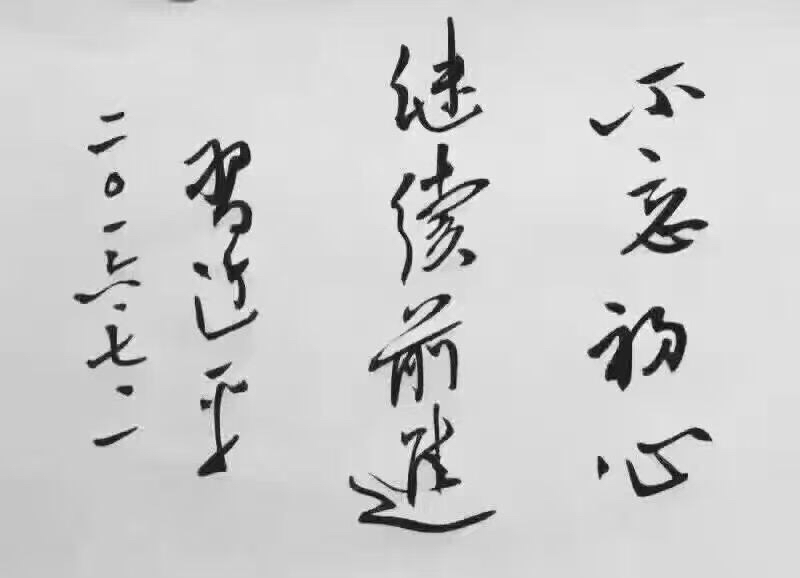 不忘初心
继续前進
習近平
二〇一六·七·一